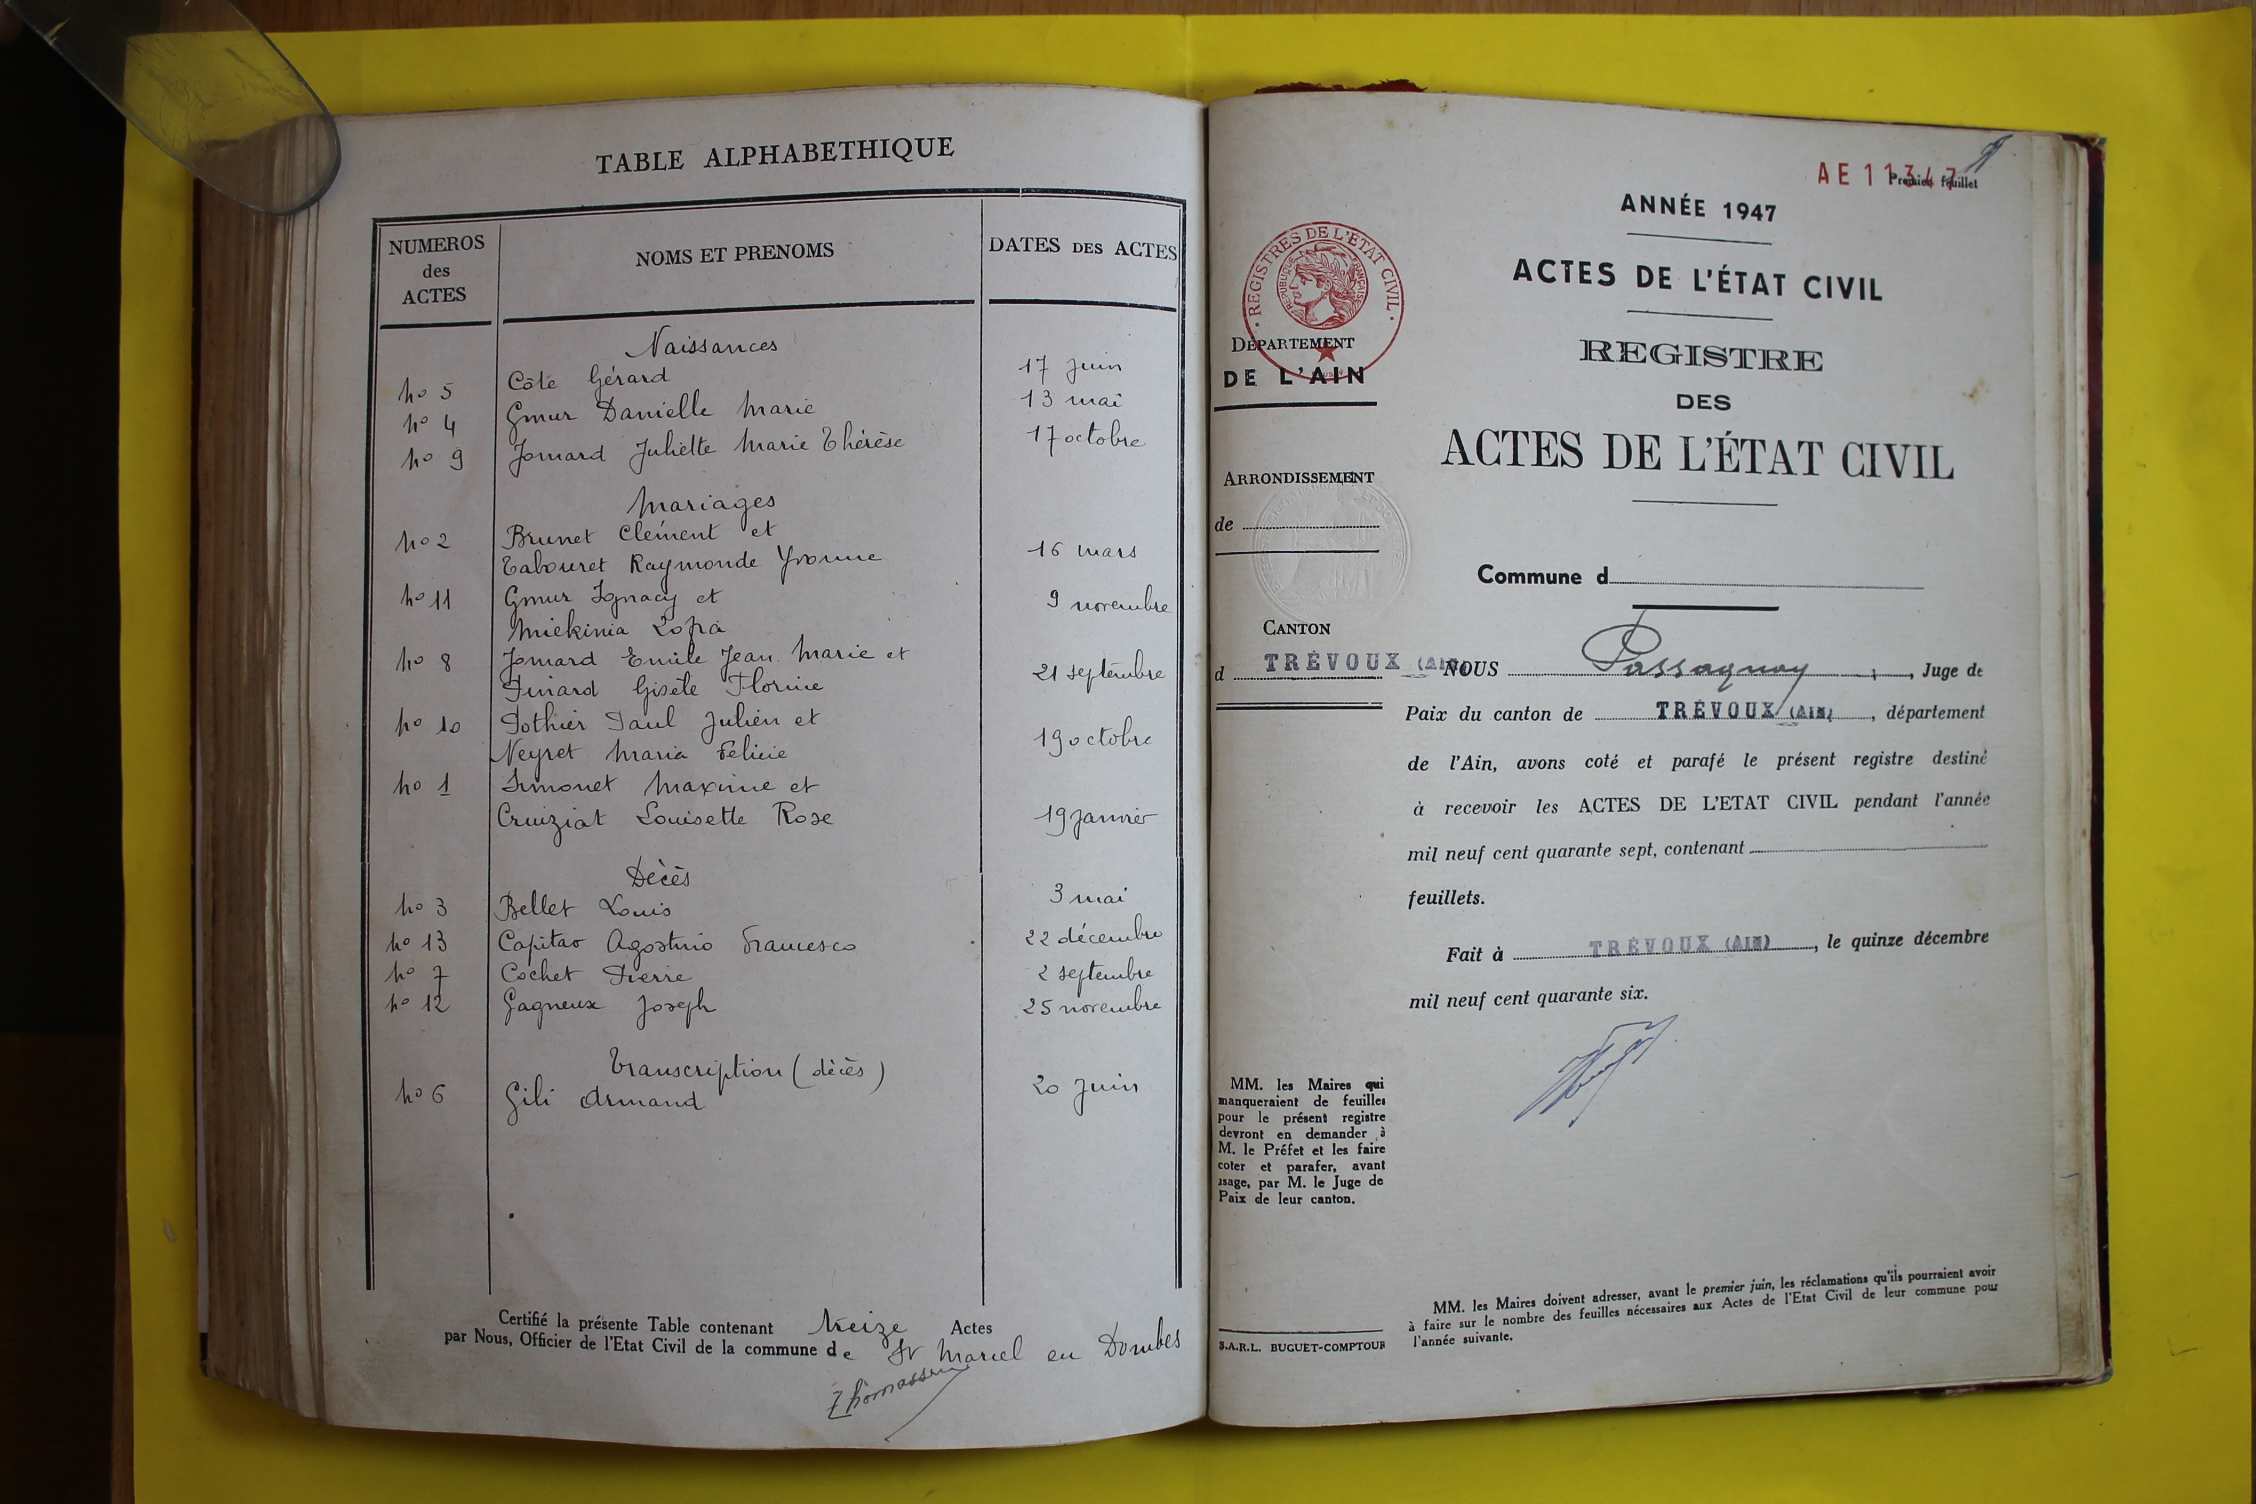 TABLE ALPHABETHIQUE
NUMEROS
des
ACTES
NOMS ET PRENOMS
DATES DES ACTES
Naissances
no 5 Côte Gérard 17 juin
no 4 Gmur Danielle Marie 13 mai
no 9 Jomard Juliette Marie Thérèse 17 octobre
Mariages
no 2 Brunet Clément et
Tabouret Raymonde Yvonne 16 mars
no 11 Gmur Ignacy et 9 novembre
Miekinia Zofia
no 8 Jomard Emile Jean Marie et
Pinard Gisèle Florine 21 septembre
no 10 Pothier Paul Julien et
Neyret Maria Félicie 19 octobre
no 1 Simonet Maxime et
Cruiziat Louisette Rose 19 janvier
Décès
no 3 Bellet Louis 3 mai
no 13 Capitao Agostino Francesco 22 décembre
no 7 Cochet Pierre 2 septembre
no 12 Gagneux Joseph 25 novembre
Transcription (décès)
no 6 Gili Armand 20 juin
Certifié la présente Table contenant treize Actes
par Nous, Officier de l'Etat Civil de la commune de St Marcel en Dombes
Thomasson
AE 11347
Premier feuillet
ANNÉE 1947
ACTES DE L'ÉTAT CIVIL
REGISTRE
DES
ACTES DE L'ÉTAT CIVIL
REGISTRES DE L'ETAT CIVIL
REPUBLIQUE FRANÇAISE
DEPARTEMENT
DE L'AIN
ARRONDISSEMENT
de
CANTON
d TRÉVOUX (AIN)
Commune d
NOUS Passaquay, Juge de
Paix du canton de TRÉVOUX (AIN), département
de l'Ain, avons coté et parafé le présent registre destiné
à recevoir les ACTES DE L'ETAT CIVIL pendant l'année
mil neuf cent quarante sept, contenant
feuillets.
Fait à TRÉVOUX (AIN), le quinze décembre
mil neuf cent quarante six.
MM. les Maires qui
manqueraient de feuilles
pour le présent registre
devront en demander à
M. le Préfet et les faire
coter et parafer, avant
usage, par M. le Juge de
Paix de leur canton.
S.A.R.L. BUGUET-COMPTOUR
MM. les Maires doivent adresser, avant le premier juin, les réclamations qu'ils pourraient avoir
à faire sur le nombre des feuilles nécessaires aux Actes de l'Etat Civil de leur commune pour
l'année suivante.